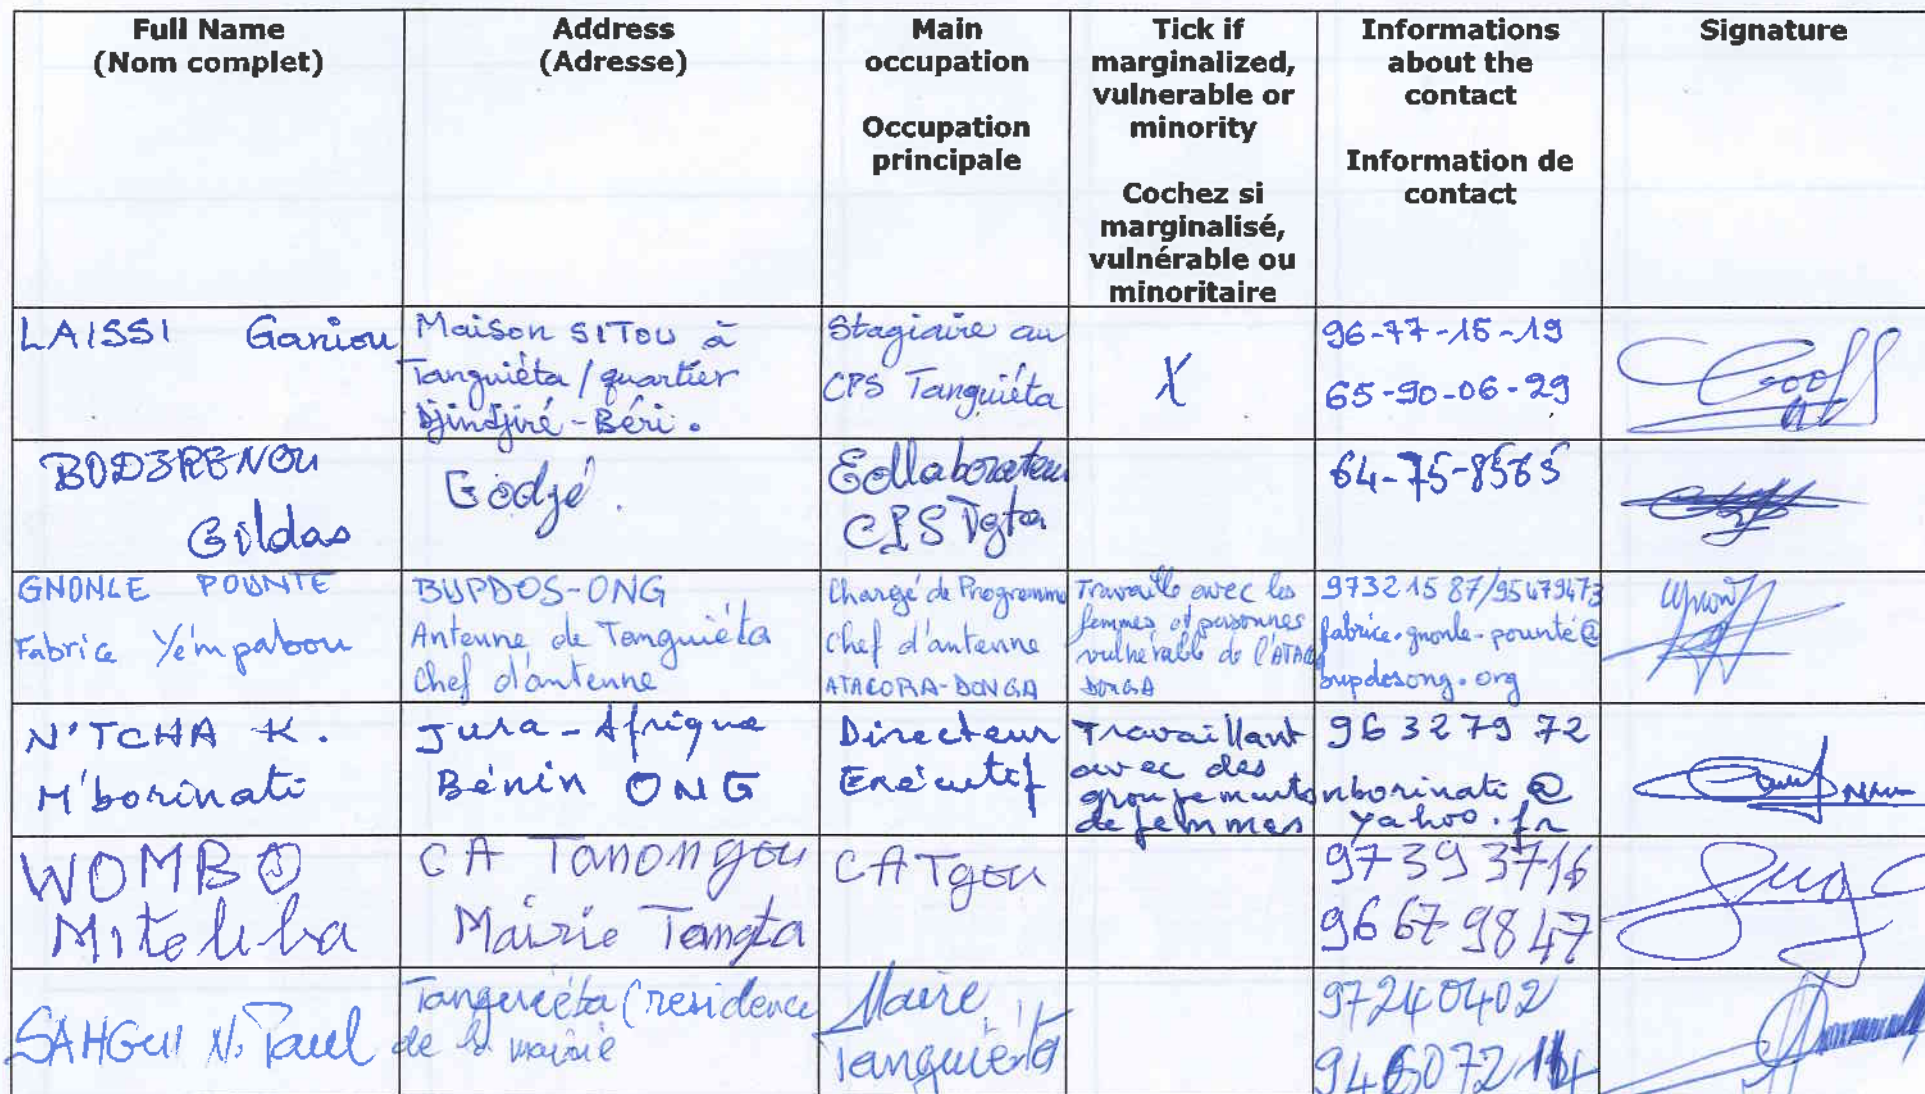 Full Name
(Nom complet)
Address
(Adresse)
Main
occupation
Occupation
principale
Tick if
marginalized,
vulnerable or
minority
Cochez si
marginalisé,
vulnérable ou
minoritaire
Informations
about the
contact
Information de
contact
Signature
LAISSI Ganiou
Maison SITOU à
Tanguiéta / quartier
Djindjiré-Béri.
Stagiaire au
CPS Tanguiéta
X
96-77-15-19
65-90-06-29
Gildas
Collaborateur
CPS Tgta
64-75-8565
GNONLE POUNTE
Fabrice Yémpabou
BUPDOS-ONG
Antenne de Tanguiéta
Chef d'antenne
Chargé de Programme
Chef d'antenne
ATACORA-DONGA
Travaille avec les
femmes et personnes
vulnérable de l'ATACO
DONGA
97321587/95479473
fabrice.gnonle-pounté@
bupdosong.org
N'TCHA K.
M'borinati
Jura-Afrique
Bénin ONG
Directeur
Exécutif
Travaillant
avec des
groupements
de femmes
96327972
nborinati@
yahoo.fr
WOMBO
CA Tanongou
Mairie Tangta
CA Tgou
97393716
96679847
SAHGUI N. Paul
Tanguiéta (residence
de la mairie
Maire
Tanguiéta
97240402